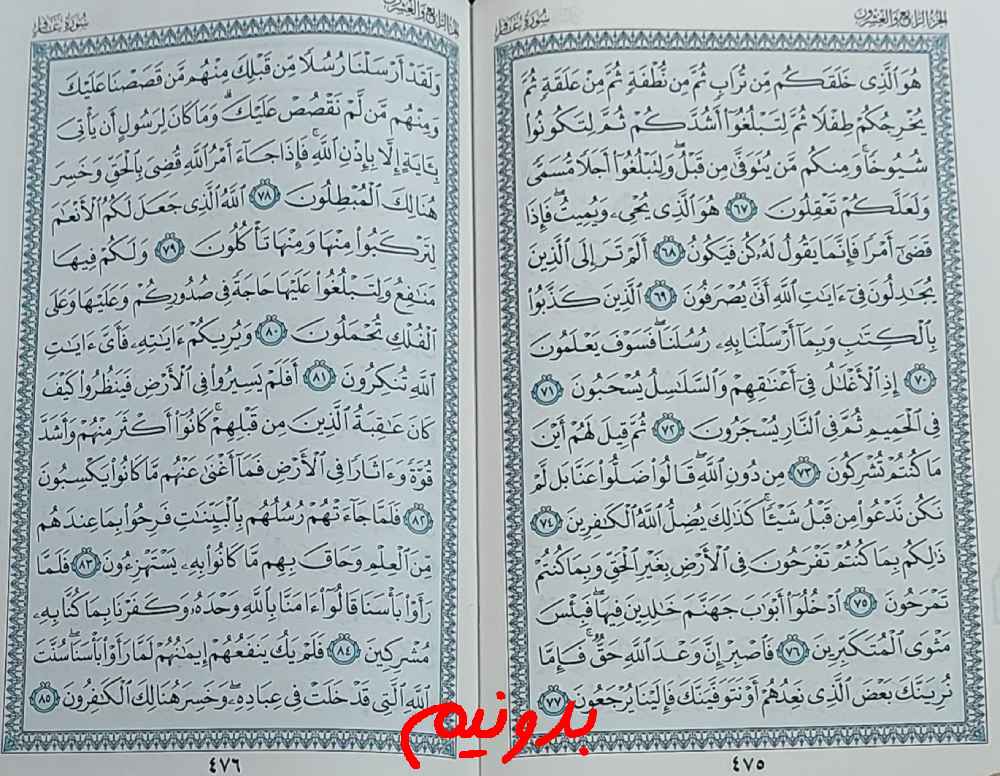 الجزء الرابع والعشرون
سورة غافر
هُوَ ٱلَّذِى خَلَقَكُم مِّن تُرَابٍ ثُمَّ مِن نُّطْفَةٍ ثُمَّ مِنْ عَلَقَةٍ ثُمَّ
يُخْرِجُكُمْ طِفْلًا ثُمَّ لِتَبْلُغُوٓا۟ أَشُدَّكُمْ ثُمَّ لِتَكُونُوا۟
شُيُوخًا ۚ وَمِنكُم مَّن يُتَوَفَّىٰ مِن قَبْلُ ۖ وَلِتَبْلُغُوٓا۟ أَجَلًا مُّسَمًّى
وَلَعَلَّكُمْ تَعْقِلُونَ ٦٧ هُوَ ٱلَّذِى يُحْىِۦ وَيُمِيتُ ۖ فَإِذَا
قَضَىٰٓ أَمْرًا فَإِنَّمَا يَقُولُ لَهُۥ كُن فَيَكُونُ ٦٨ أَلَمْ تَرَ إِلَى ٱلَّذِينَ
يُجَٰدِلُونَ فِىٓ ءَايَٰتِ ٱللَّهِ أَنَّىٰ يُصْرَفُونَ ٦٩ ٱلَّذِينَ كَذَّبُوا۟
بِٱلْكِتَٰبِ وَبِمَآ أَرْسَلْنَا بِهِۦ رُسُلَنَا ۖ فَسَوْفَ يَعْلَمُونَ
٧٠ إِذِ ٱلْأَغْلَٰلُ فِىٓ أَعْنَٰقِهِمْ وَٱلسَّلَٰسِلُ يُسْحَبُونَ ٧١
فِى ٱلْحَمِيمِ ثُمَّ فِى ٱلنَّارِ يُسْجَرُونَ ٧٢ ثُمَّ قِيلَ لَهُمْ أَيْنَ
مَا كُنتُمْ تُشْرِكُونَ ٧٣ مِن دُونِ ٱللَّهِ ۖ قَالُوا۟ ضَلُّوا۟ عَنَّا بَل لَّمْ
نَكُن نَّدْعُوا۟ مِن قَبْلُ شَيْـًٔا ۚ كَذَٰلِكَ يُضِلُّ ٱللَّهُ ٱلْكَٰفِرِينَ ٧٤
ذَٰلِكُم بِمَا كُنتُمْ تَفْرَحُونَ فِى ٱلْأَرْضِ بِغَيْرِ ٱلْحَقِّ وَبِمَا كُنتُمْ
تَمْرَحُونَ ٧٥ ٱدْخُلُوٓا۟ أَبْوَٰبَ جَهَنَّمَ خَٰلِدِينَ فِيهَا ۖ فَبِئْسَ
مَثْوَى ٱلْمُتَكَبِّرِينَ ٧٦ فَٱصْبِرْ إِنَّ وَعْدَ ٱللَّهِ حَقٌّ ۚ فَإِمَّا
نُرِيَنَّكَ بَعْضَ ٱلَّذِى نَعِدُهُمْ أَوْ نَتَوَفَّيَنَّكَ فَإِلَيْنَا يُرْجَعُونَ ٧٧
٤٧٥
الجزء الرابع والعشرون
سورة غافر
وَلَقَدْ أَرْسَلْنَا رُسُلًا مِّن قَبْلِكَ مِنْهُم مَّن قَصَصْنَا عَلَيْكَ
وَمِنْهُم مَّن لَّمْ نَقْصُصْ عَلَيْكَ ۗ وَمَا كَانَ لِرَسُولٍ أَن يَأْتِىَ
بِـَٔايَةٍ إِلَّا بِإِذْنِ ٱللَّهِ ۚ فَإِذَا جَآءَ أَمْرُ ٱللَّهِ قُضِىَ بِٱلْحَقِّ وَخَسِرَ
هُنَالِكَ ٱلْمُبْطِلُونَ ٧٨ ٱللَّهُ ٱلَّذِى جَعَلَ لَكُمُ ٱلْأَنْعَٰمَ
لِتَرْكَبُوا۟ مِنْهَا وَمِنْهَا تَأْكُلُونَ ٧٩ وَلَكُمْ فِيهَا
مَنَٰفِعُ وَلِتَبْلُغُوا۟ عَلَيْهَا حَاجَةً فِى صُدُورِكُمْ وَعَلَيْهَا وَعَلَى
ٱلْفُلْكِ تُحْمَلُونَ ٨٠ وَيُرِيكُمْ ءَايَٰتِهِۦ فَأَىَّ ءَايَٰتِ
ٱللَّهِ تُنكِرُونَ ٨١ أَفَلَمْ يَسِيرُوا۟ فِى ٱلْأَرْضِ فَيَنظُرُوا۟ كَيْفَ
كَانَ عَٰقِبَةُ ٱلَّذِينَ مِن قَبْلِهِمْ ۚ كَانُوٓا۟ أَكْثَرَ مِنْهُمْ وَأَشَدَّ
قُوَّةً وَءَاثَارًا فِى ٱلْأَرْضِ فَمَآ أَغْنَىٰ عَنْهُم مَّا كَانُوا۟ يَكْسِبُونَ
٨٢ فَلَمَّا جَآءَتْهُمْ رُسُلُهُم بِٱلْبَيِّنَٰتِ فَرِحُوا۟ بِمَا عِندَهُم
مِّنَ ٱلْعِلْمِ وَحَاقَ بِهِم مَّا كَانُوا۟ بِهِۦ يَسْتَهْزِءُونَ ٨٣ فَلَمَّا
رَأَوْا۟ بَأْسَنَا قَالُوٓا۟ ءَامَنَّا بِٱللَّهِ وَحْدَهُۥ وَكَفَرْنَا بِمَا كُنَّا بِهِۦ
مُشْرِكِينَ ٨٤ فَلَمْ يَكُ يَنفَعُهُمْ إِيمَٰنُهُمْ لَمَّا رَأَوْا۟ بَأْسَنَا ۖ سُنَّتَ
ٱللَّهِ ٱلَّتِى قَدْ خَلَتْ فِى عِبَادِهِۦ ۖ وَخَسِرَ هُنَالِكَ ٱلْكَٰفِرُونَ ٨٥
٤٧٦
بدونیم